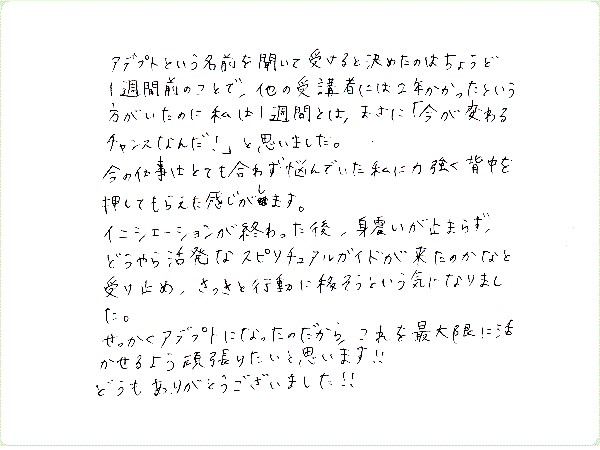 アデプトという名前を聞いて受けると決めたのはちょうど
1週間前のことで、他の受講者には2年かかったという
方がいたのに私は1週間とは、まさに「今が変わる
チャンスなんだ!」と思いました。
今の仕事はとても合わず悩んでいた私に力強く背中を
押してもらえた感じがします。
イニシエーションが終わった後、身震いが止まらず、
どうやら活発なスピリチュアルガイドが来たのかなと
受け止め、さっさと行動に移そうという気になりまし
た。
せっかくアデプトになったのだから、これを最大限に活
かせるよう頑張りたいと思います!!
どうもありがとうございました!!